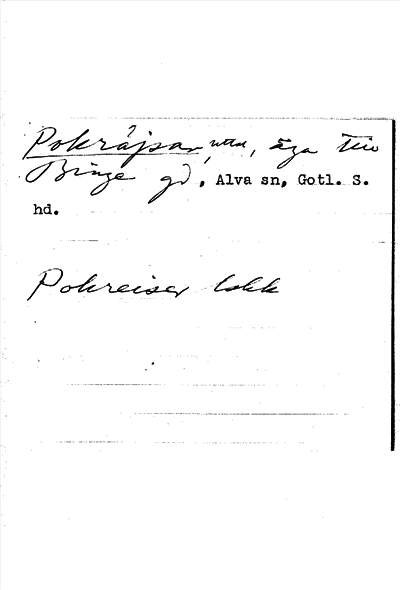 Pokräjsar, utta, äga till
Binge gd, Alva sn, Gotl. S.
hd.
Pokreiser lokk